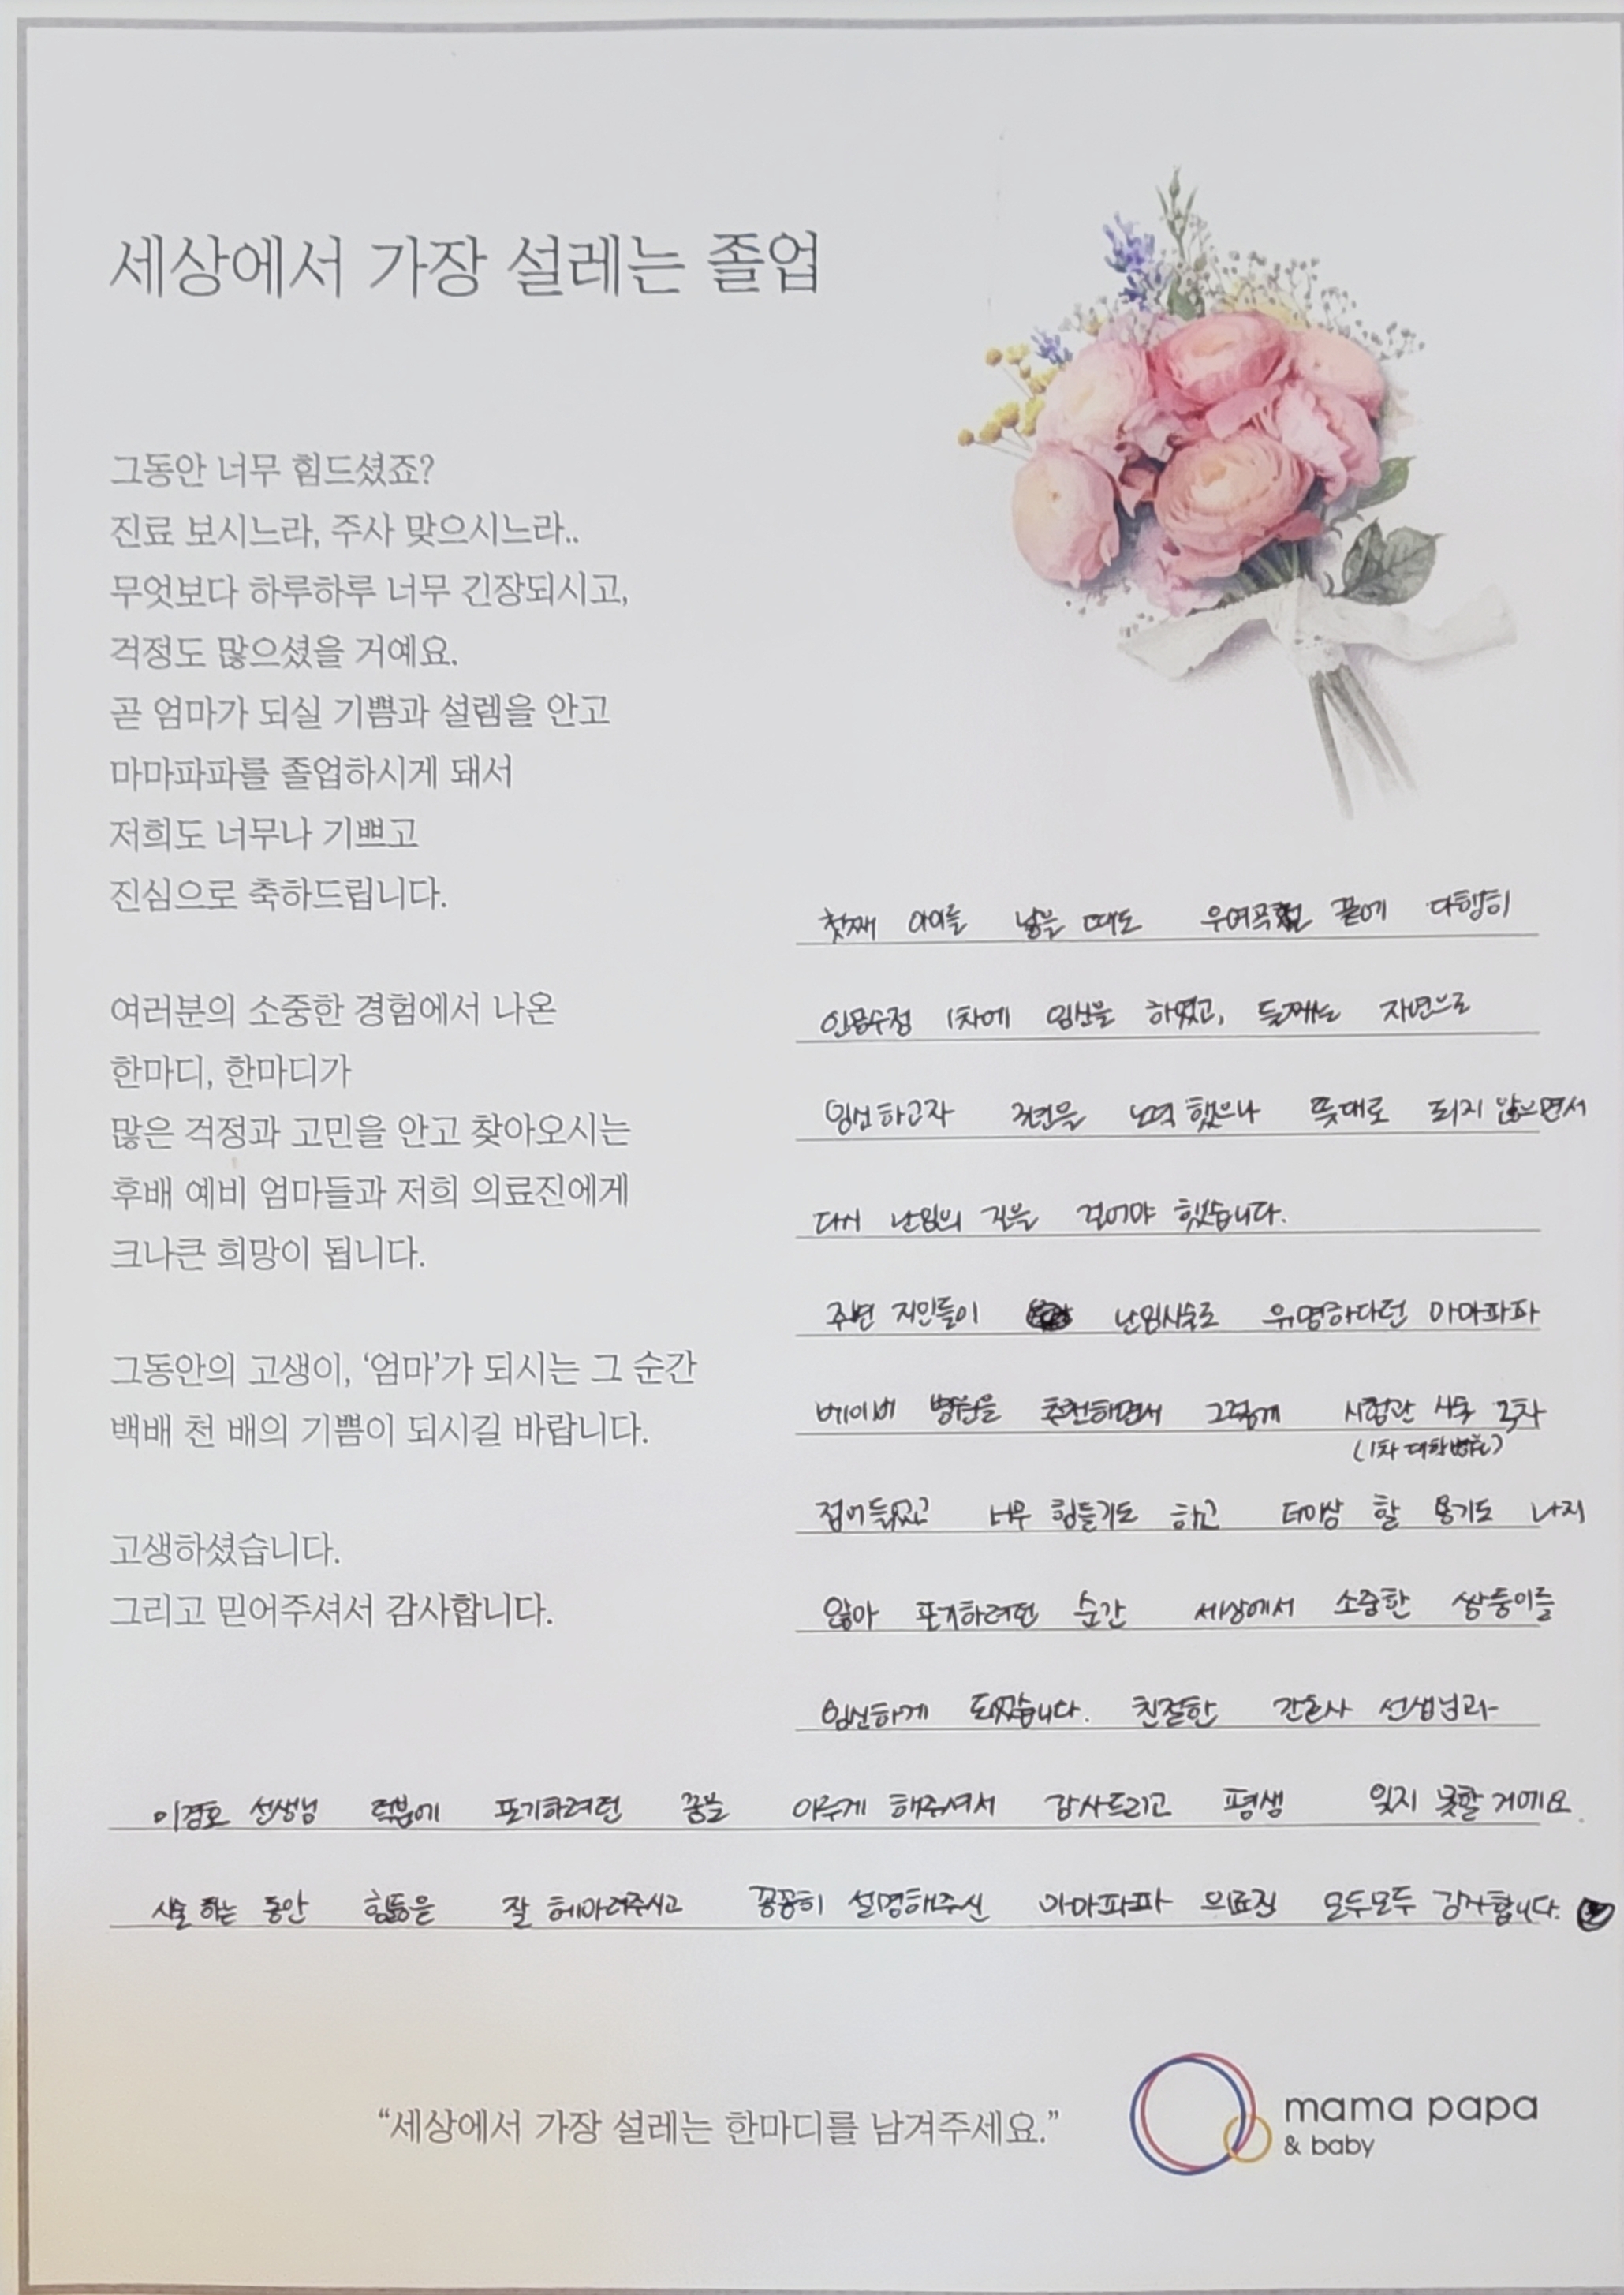 세상에서 가장 설레는 졸업
그동안 너무 힘드셨죠?
진료 보시느라, 주사 맞으시느라..
무엇보다 하루하루 너무 긴장되시고,
걱정도 많으셨을 거예요.
곧 엄마가 되실 기쁨과 설렘을 안고
마마파파를 졸업하시게 돼서
저희도 너무나 기쁘고
진심으로 축하드립니다.
여러분의 소중한 경험에서 나온
한마디, 한마디가
많은 걱정과 고민을 안고 찾아오시는
후배 예비 엄마들과 저희 의료진에게
크나큰 희망이 됩니다.
그동안의 고생이, ‘엄마’가 되시는 그 순간
백배 천 배의 기쁨이 되시길 바랍니다.
고생하셨습니다.
그리고 믿어주셔서 감사합니다.
첫째 아이를 낳을 때도 우여곡절 끝에 다행히
인공수정 1차에 임신을 하였고, 둘째는 자연으로
임신하고자 노력 했으나 뜻대로 되지 않으면서
다시 난임의 길을 걸어야 했습니다.
주변 지인들이 난임시술로 유명하다던 마마파파
베이비 병원을 추천하면서 그렇게 시험관 시술 2차
(1차 대학병원)
접어들었고 너무 힘들기도 하고 더이상 할 용기도 나지
않아 포기하려던 순간 세상에서 소중한 쌍둥이를
임신하게 되었습니다. 친절한 간호사 선생님과
이경호 선생님 덕분에 포기하려던 꿈을 이루게 해주셔서 감사드리고 평생 잊지 못할 거예요.
시술 하는 동안 힘듦을 잘 헤아려주시고 꼼꼼히 설명해주신 마마파파 의료진 모두모두 감사합니다.
“세상에서 가장 설레는 한마디를 남겨주세요.”
mama papa
& baby